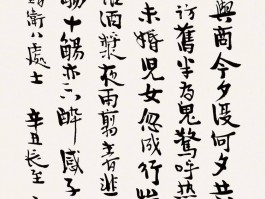 與商今夕復何夕共
訪舊半為鬼驚呼熱
未婚兒女忽成行
酒漿夜雨剪春韭
觴十觴亦不醉感子
衛八處士 辛丑長至